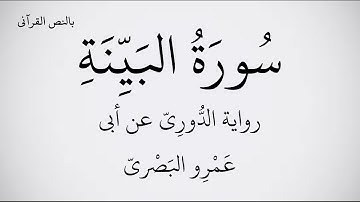 بالنص القرآنى
سُورَةُ البَيِّنَةِ
رواية الدُّورِىّ عن أبى
عَمْرِو البَصْرِىّ